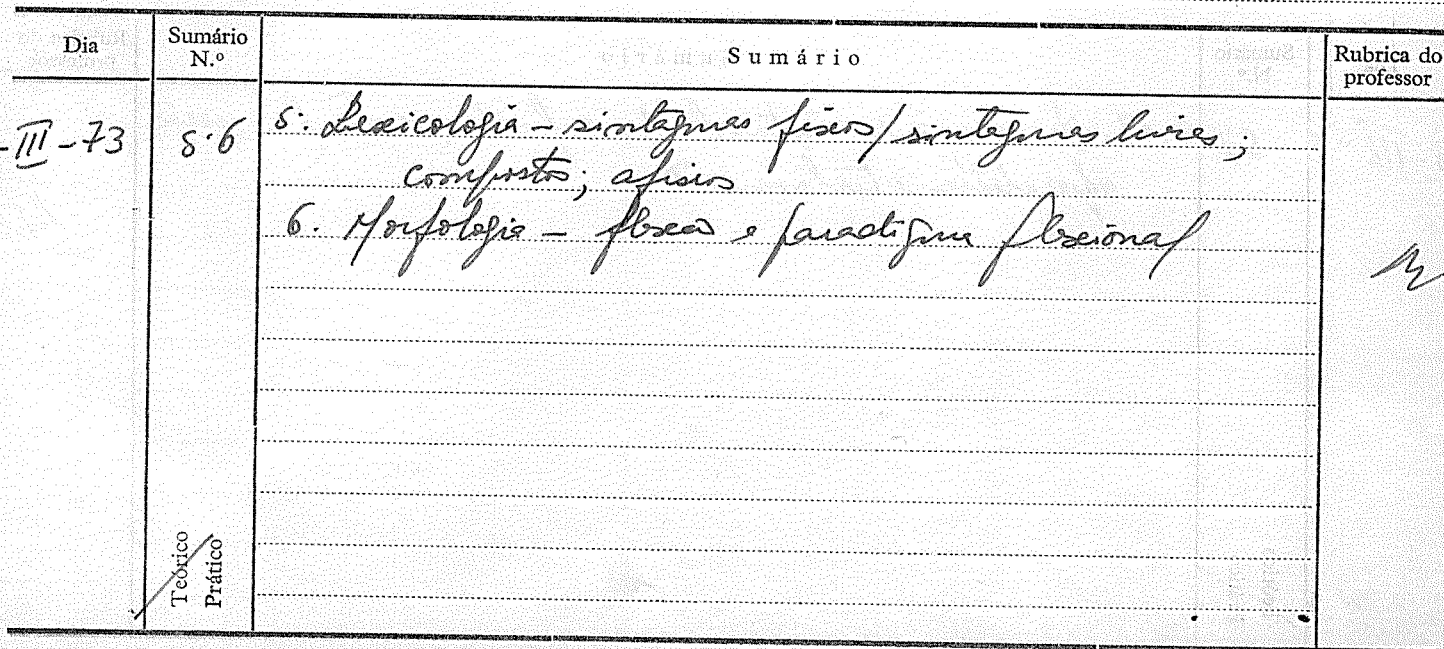 Dia
Sumário N.º
Sumário
Rubrica do professor
-III-73
5.6
5. Lexicologia - sintagmas fixos / sintagmas livres;
compostos; afixos
6. Morfologia - flexão e paradigma flexional
Teórico
Prático